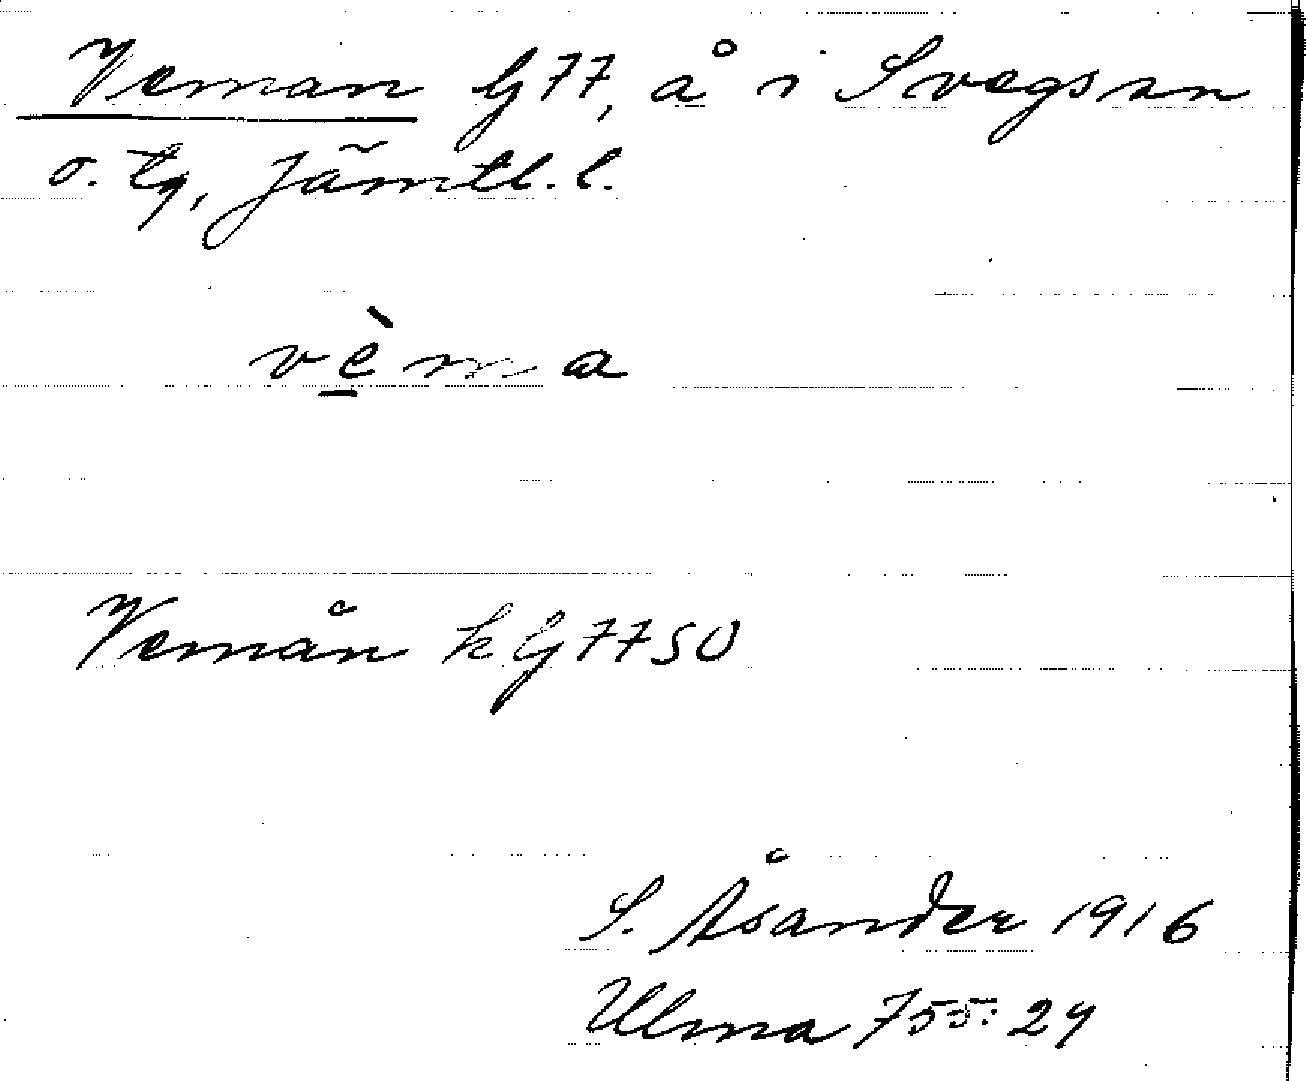 Veman G77, å i Svegs sn
o. tg, Jämtl. l.
vèma
Vemån k G77 SO
S. Åsander 1916
Ulma 755:24